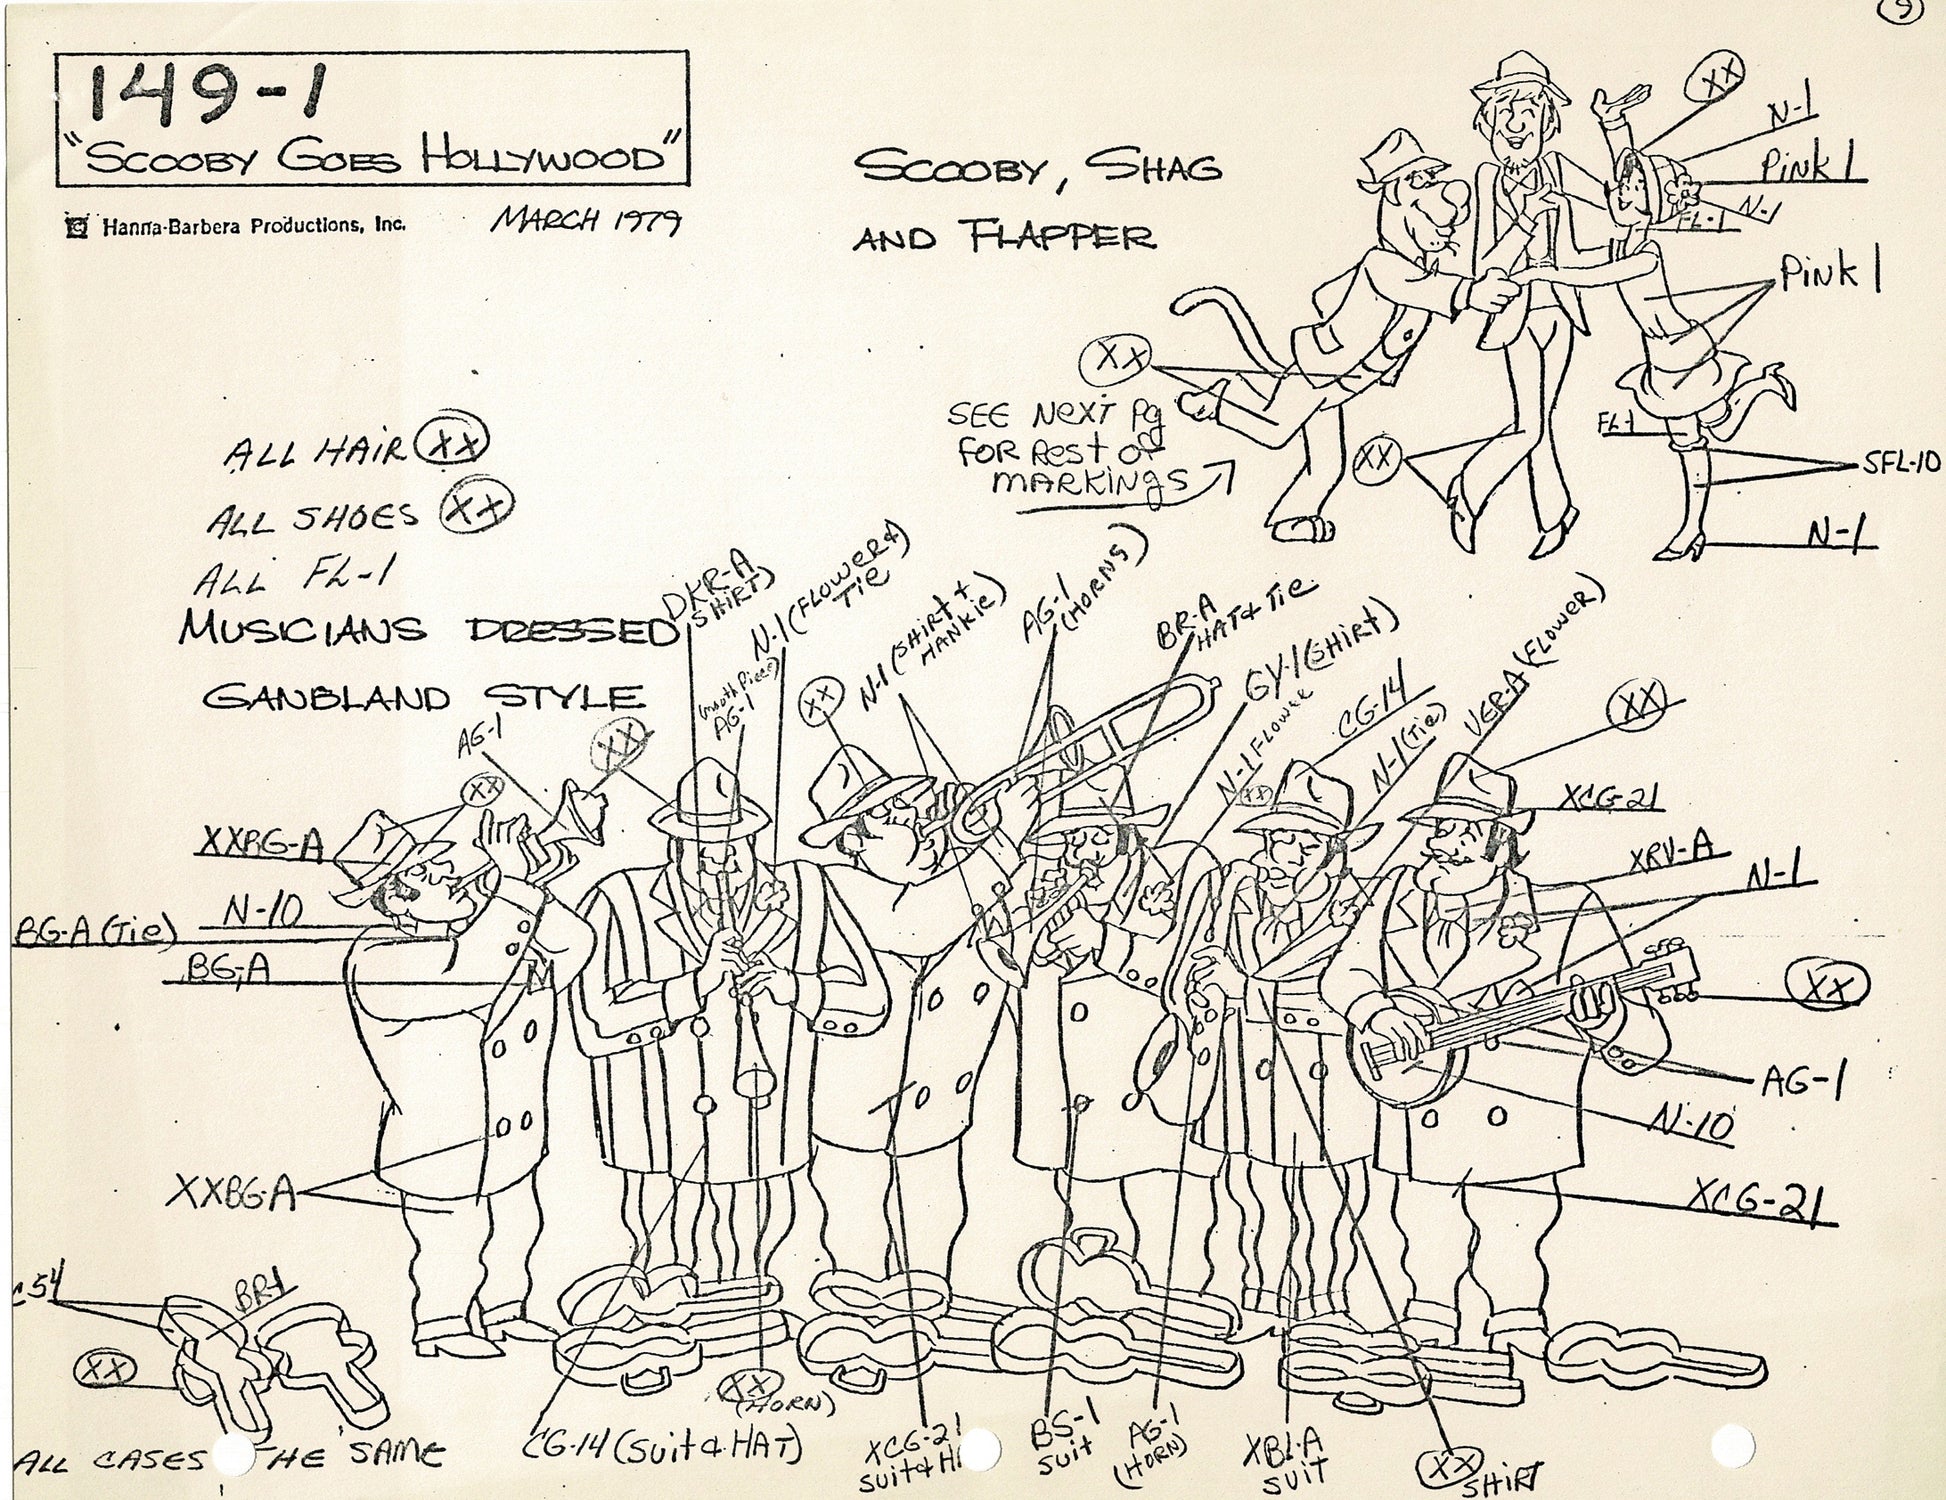 9
149-1
"SCOOBY GOES HOLLYWOOD"
Hanna-Barbera Productions, Inc.
MARCH 1979
SCOOBY, SHAG
AND FLAPPER
XX
N-1
PINK 1
N-1
FL-1
PINK 1
XX
SEE NEXT Pg
FOR REST OF
MARKINGS
XX
FL-1
SFL-10
N-1
ALL HAIR XX
ALL SHOES XX
ALL FL-1
MUSICIANS DRESSED
GANBLAND STYLE
AG-1
XX
XX
DKR-A
SHIRT)
(Mouth Piece)
AG-1
N-1 (FLOWER &
TIE
XX
N-1 (SHIRT +
HANKIE)
AG-1
(HORNS)
BR-A
HAT & TIE
GY-1 (SHIRT)
N-1 FLOWER
XX
CG-14
N-1 (TIE)
VER-A (FLOWER)
XX
XCG-21
XRV-A
N-1
XX
XX
AG-1
N-10
XCG-21
XXBG-A
N-10
BG-A (TIE)
BG-A
XXBG-A
C54
BR-1
XX
ALL CASES THE SAME
CG-14 (SUIT & HAT)
XX
(HORN)
XCG-21
SUIT & H
BS-1
SUIT
AG-1
(HORN)
XBL-A
SUIT
XX
SHIRT